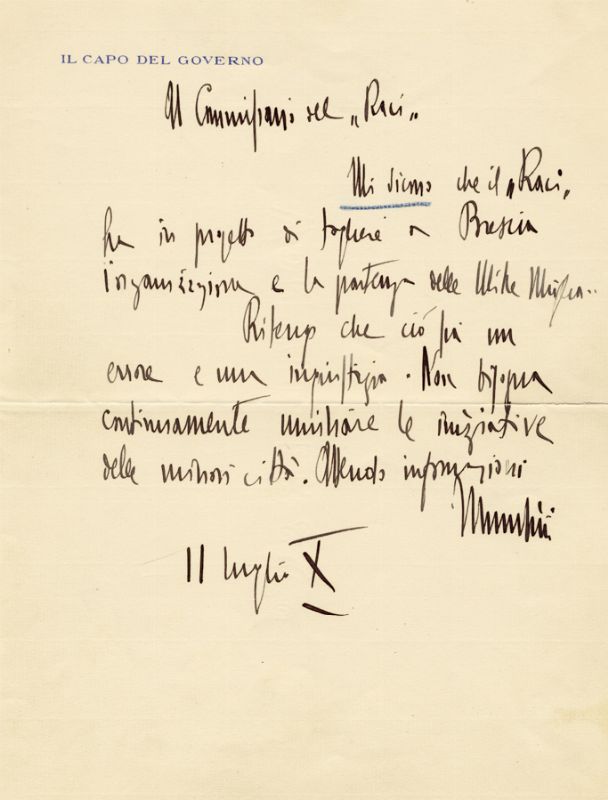 IL CAPO DEL GOVERNO
Al Commissario del „Raci„
Mi dicono che il „Raci„
ha in progetto di togliere a Brescia
l'organizzazione e la partenza delle Mille Miglia..
Ritengo che ciò sia un
errore e una ingiustizia. Non bisogna
continuamente umiliare le iniziative
delle minori città. Attendo informazioni
Mussolini
11 luglio X